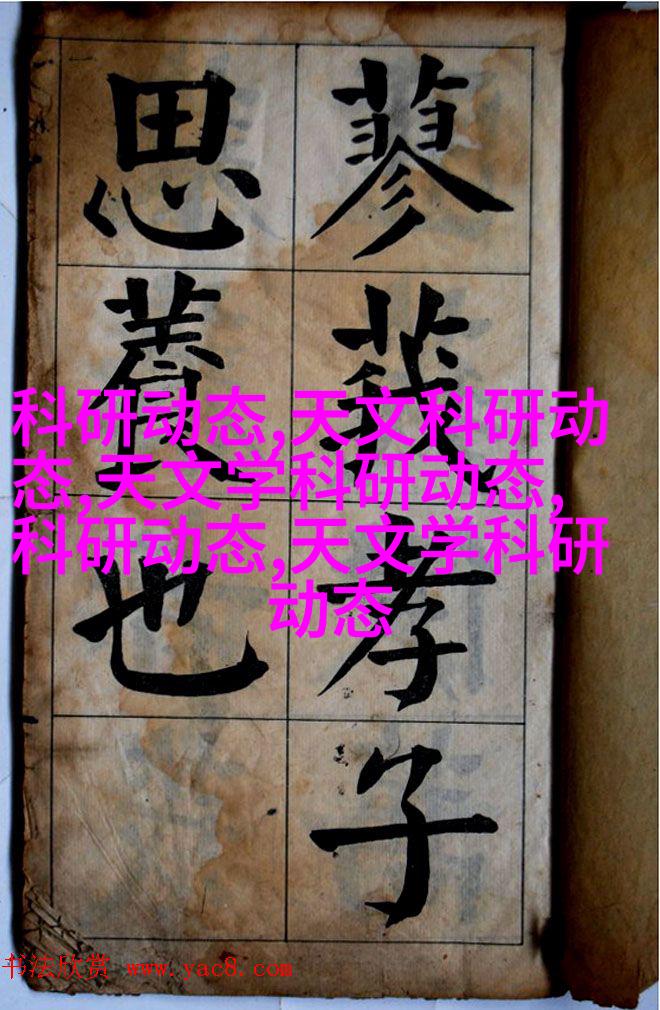 蓼莪孝子
思養也
科研动态,天文科研动
态,天文学科研动态,
科研动态,天文学科研
动态
书法欣赏 www.yac8.com